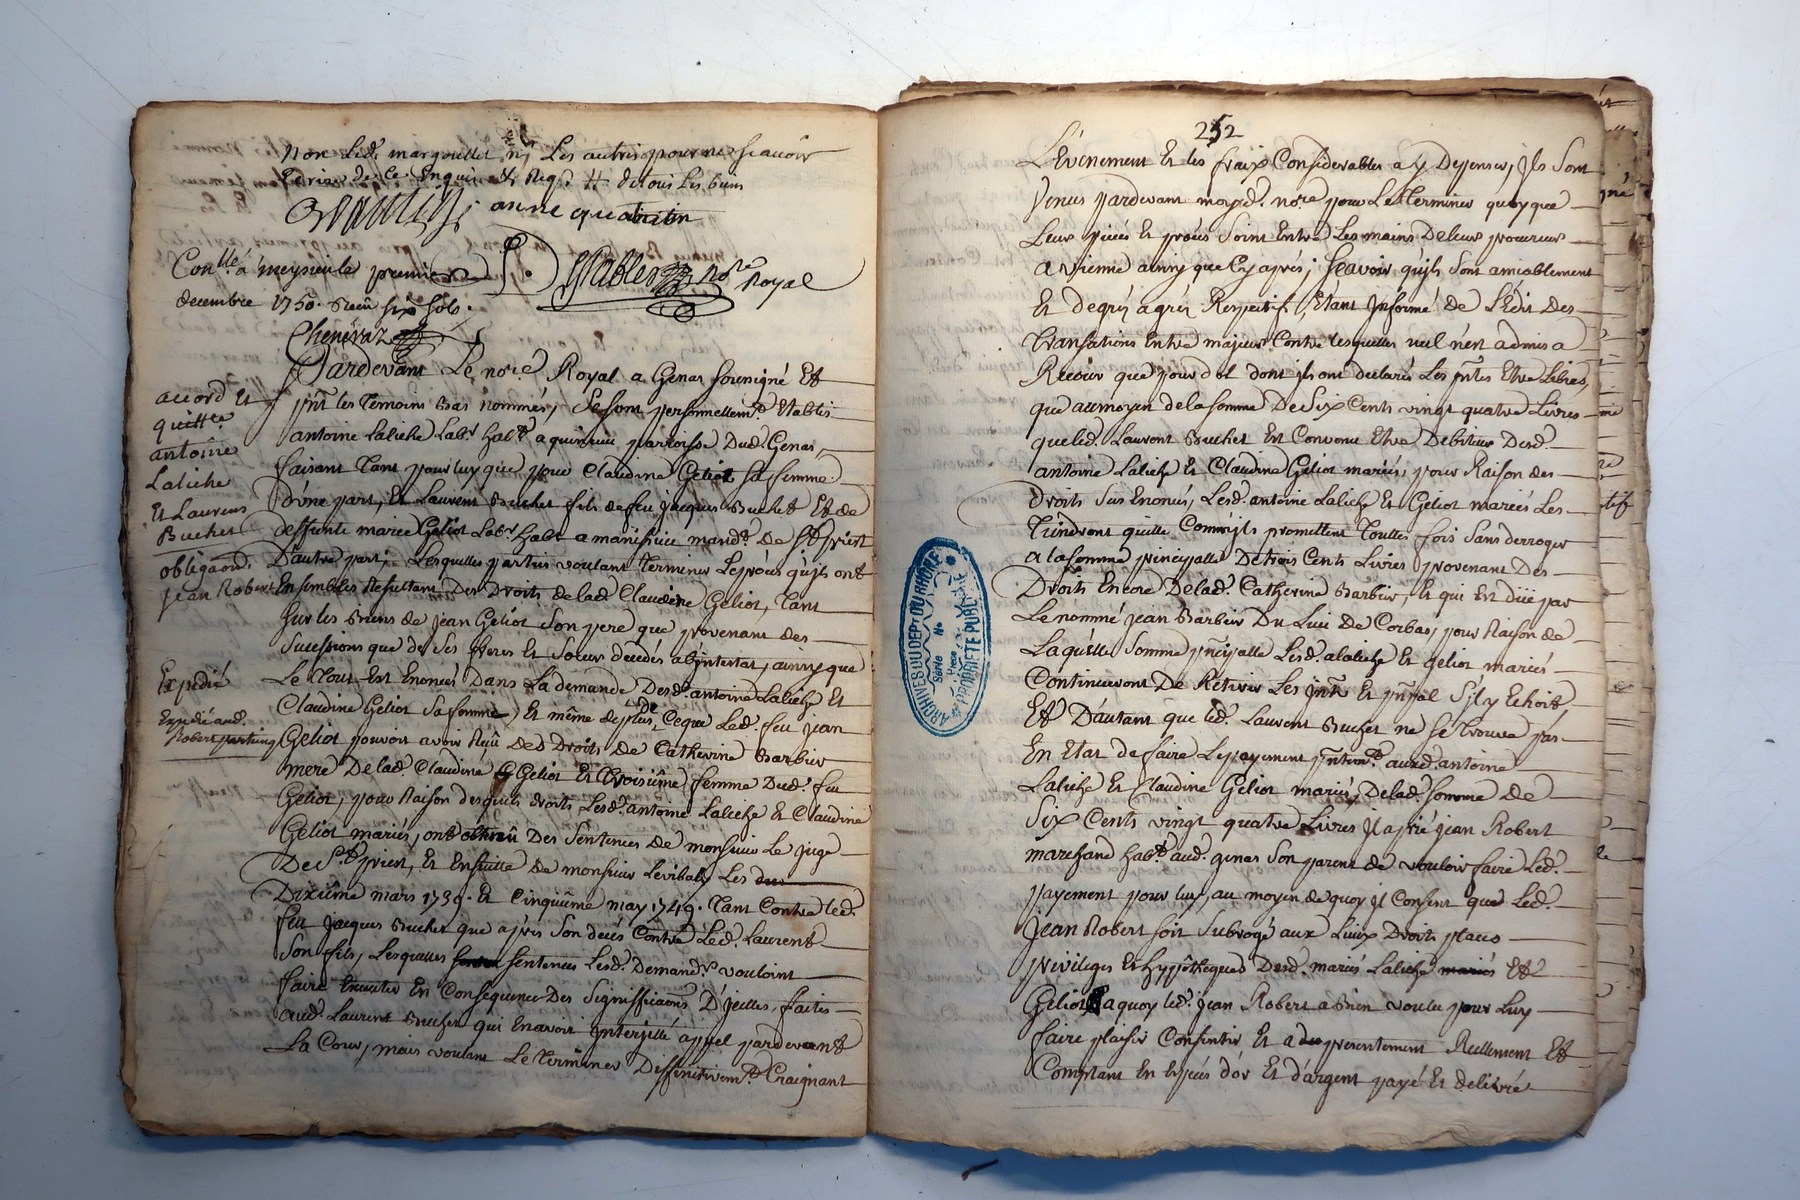 non led. margouillet ny les autres pour ne scavoir
de ce Enquis & Req. H de tous les biens
anne quantin
Con.llé a meysieu le premier
decembre 1750. Receu six sols.
no.re Royal
Chenevaz
Pardevant Le no.re Royal a Genas soussigné Et
p̃nt les temoins bas nommés, se sont personnellem.t Etablis
antoine Laliche Lab.r hab.t a quincieu parroisse Dud. Genas,
faisant tant pour luy que pour Claudine Geliot sa femme
D'une part, Et Laurent Buchet fils de feu jacques Buchet Et de
deffunte marie Geliot Lab.r habt a manissieu mand.t De S.t priest
D'autre part; Lesquelles parties voulant terminer Le procés qu'ils ont
Ensembles Resultant Des Droits de lad. Claudine Geliot, tant
sur les Biens de jean Geliot son pere que provenant des
sucessions que de ses freres Et sœurs decedés abintestat, ainsy que
Le tout Est Enoncés Dans La demande Desd. antoine Laliche Et
Claudine Geliot sa femme, Et même de plus, Ce que Led. feu jean
Geliot pouvoit avoir Reçû Des Droits de Catherine Barbier
mere De lad. Claudine Geliot Et troisième femme Dud. feu
Geliot, pour Raison desquels droits Lesd. antoine Laliche Et Claudine
Geliot mariés, ont obtenû Des Sentences de monsieur Le juge
De S.t priest, Et Ensuitte de monsieur Levibaly Les
Dixième mars 1739. Et Cinquième may 1749. tant Contre led.
feu jacques Buchet que après son decés Contre Led. Laurent
son fils, Lesquelles sentences Lesd. Demand.rs vouloint
faire Executer En Consequence Des Significaôns D'jcelles faites
aud. Laurent Buchet qui En avoit jnterjetté appel pardevant
La Cour, mais voulant Le terminer Diffinitivem.t Craignant
accord Et
quitt.ce
antoine
Laliche
Et Laurens
Buchet
obligaôn.
jean Robert
Expedié
Expedié aud.
Robert
252
L'événement Et les fraix Considerables a y Depenser, jls sont
Venus pardevant moyd. no.re pour Le terminer quoyque
Leurs pieces Et procés soint Entre Les mains De leurs procureurs
a vienne ainsy que Cy aprés; scavoir qu'jls sont amiablement
Et de gré a gré Respectif, Etant jnformé de L'Edit Des
transations Entre majeurs Contre lesquelles nul n'est admis a
Recour que pour dol dont jls ont declarés Les p̃ntes Etre Libres,
que au moyen de la somme De Six Cents vingt quatre Livres
que led. Laurent Buchet Est Convenu Etre Debiteur Desd.
antoine Laliche Et Claudine Geliot mariés, pour Raison des
Droits Sus Enoncés, Lesd. antoine Laliche Et Geliot mariés Les
tiendront quitte Comm'jls promettent toutes fois sans derroger
a la somme principalle De trois Cents Livres provenant Des
Droits Encore De lad. Catherine Barbier, Et qui Est düe par
Le nommé jean Barbier Du Lieu De Corbas, pour Raison de
Laquelle somme p̃ncipalle Lesd. alaliche Et geliot mariés
Continueront De Retirer Les jnt.s Et p̃ncipal S'jl y Echoit,
Et D'autant que led. Laurent Buchet ne se trouve pas
En Etat de faire Le payement p̃ntem.t aud. antoine
Laliche Et Claudine Geliot mariés De lad. somme De
Six Cents vingt quatre Livres jl a prié jean Robert
marchand hab.t aud. genas son parent de vouloir faire Led.
payement pour luy, au moyen de quoy jl Consent que Led.
jean Robert soit Subrogé aux Lieux Droits places
privileges Et hyppôtheques Desd. mariés Laliche mariés Et
Geliot a quoy led. jean Robert a Bien voulu pour Luy
faire plaisir Consentir Et a presentement Reellement Et
Comptant En Especes d'or Et d'argent payé Et delivré
ARCHIVES DU DEPT DU RHONE
Série
Pièce
PROPRIETE PUBLIQUE